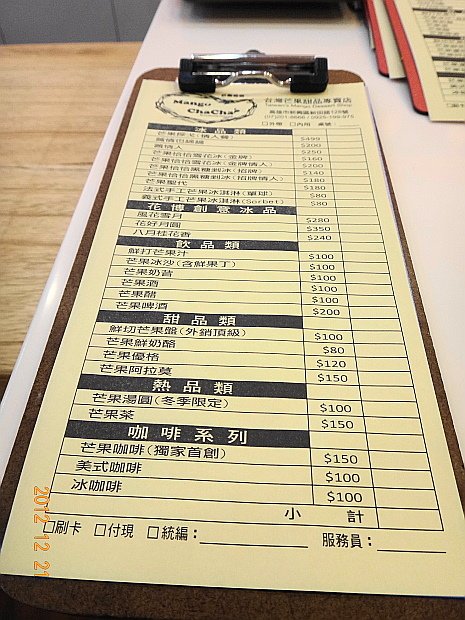 Mango ChaCha
台灣芒果甜品專賣店
Taiwan's Mango Dessert Shop
高雄市新興區新田路129號
□外帶 □內用 桌號
冰品類
芒果探戈(情人餐) $499
$250
舊情人 $200
芒果恰恰雪花冰(金牌) $160
芒果恰恰雪花冰(金牌情人) $200
芒果恰恰黑糖剉冰(招牌) $140
芒果恰恰黑糖剉冰(招牌情人) $180
芒果聖代 $180
法式手工芒果冰淇淋(單球) $80
義式手工芒果冰淇淋(Sorbet) $80
花博創意冰品
風花雪月 $280
花好月圓 $350
八月桂花香 $240
飲品類
鮮打芒果汁 $100
芒果冰沙(含鮮果丁) $100
芒果奶昔 $100
芒果酒 $100
芒果醋 $100
芒果啤酒 $200
甜品類
鮮切芒果盤(外銷頂級) $100
芒果鮮奶酪 $80
芒果優格 $120
芒果阿拉莫 $150
熱品類
芒果湯圓(冬季限定) $100
芒果茶 $150
咖啡系列
芒果咖啡(獨家首創) $150
美式咖啡 $100
冰咖啡 $100
小計
□刷卡 □付現 □統編: 服務員:
2012 12 21